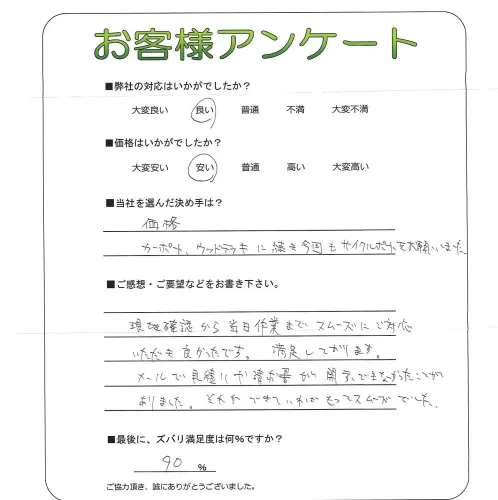 お客様アンケート
■弊社の対応はいかがでしたか？
大変良い 良い 普通 不満 大変不満
■価格はいかがでしたか？
大変安い 安い 普通 高い 大変高い
■当社を選んだ決め手は？
価格
カーポート、ウッドデッキに続き今回もサイクルポートをお願いしました
■ご感想・ご要望などをお書き下さい。
現地確認から当日作業までスムーズにご対応
いただき良かったです。満足しております。
メールで見積りや請求書が開示できなかったことが
ありました。それができていればもってスムーズでした。
■最後に、ズバリ満足度は何%ですか？
90 %
ご協力頂き、誠にありがとうございました。